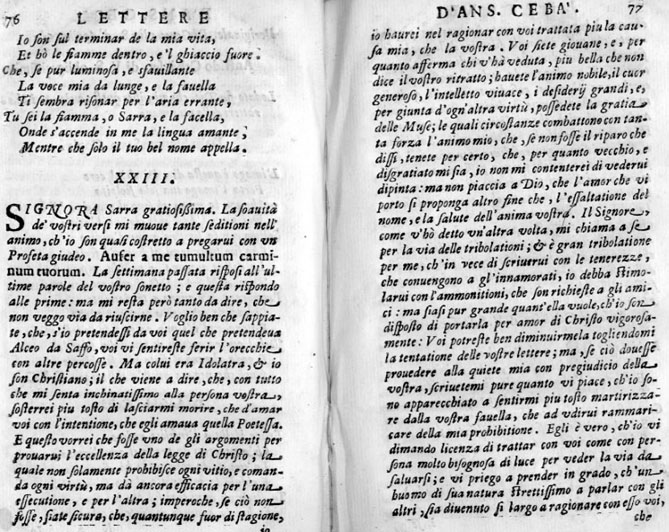 76 LETTERE
Io son sul terminar de la mia vita,
Et hò le fiamme dentro, e'l ghiaccio fuore.
Che, se pur luminosa, e sfauillante
La voce mia da lunge, e la fauella
Ti sembra risonar per l'aria errante,
Tu sei la fiamma, o Sarra, e la facella,
Onde s'accende in me la lingua amante,
Mentre che solo il tuo bel nome appella.
XXIII.
SIGNORA Sarra gratiosissima. La soauità
de' vostri versi mi muoue tante seditioni nell'
animo, ch'io son quasi costretto a pregarui con un
Profeta giudeo. Aufer a me tumultum carmi
num tuorum. La settimana passata risposi all'ul-
time parole del vostro sonetto; e questa rispondo
alle prime: ma mi resta però tanto da dire, che
non veggo via da riuscirne. Voglio ben che sappia-
te, che, s'io pretendessi da voi quel che pretendeua
Alceo da Saffo, voi vi sentireste ferir l'orecchie
con altre percosse. Ma colui era Idolatra, & io
son Christiano; il che viene a dire, che, con tutto
che mi senta inchinatissimo alla persona vostra,
sosterrei piu tosto di lasciarmi morire, che d'amar
voi con l'intentione, che egli amaua quella Poetessa.
E questo vorrei che fosse uno de gli argomenti per
prouarui l'eccellenza della legge di Christo; la
quale non solamente prohibisce ogni vitio, e coman-
da ogni virtù, ma dà ancora efficacia per l'una
essecutione, e per l'altra; imperoche, se ciò non
fosse, siate sicura, che, quantunque fuor di stagione,
io
D'ANS. CEBA'. 77
io haurei nel ragionar con voi trattata piu la cau-
sa mia, che la vostra. Voi siete giouane; e, per
quanto afferma chi v'hà veduta, piu bella che non
dice il vostro ritratto; hauete l'animo nobile, il cuor
generoso, l'intelletto viuace, i desiderij grandi, e, per
giunta d'ogn'altra virtù, possedete la gratia
delle Muse; le quali circostanze combattono con tan-
ta forza l'animo mio, che, se non fosse il riparo che
dissi, tenete per certo, che, per quanto vecchio, e
disgratiato mi sia, io non mi contenterei di vederui
dipinta: ma non piaccia a Dio, che l'amor che vi
porto si proponga altro fine che, l'essaltatione del
nome, e la salute dell'anima vostra. Il Signore,
come v'hò detto un'altra volta, mi chiama a se
per la via delle tribolationi; & è gran tribolatione
per me, ch'in vece di scriuerui con le tenerezze,
che conuengono a gl'innamorati, io debba stimo-
larui con l'ammonitioni, che son richieste a gli ami-
ci: ma siasi pur grande quant'ella vuole, ch'io son
disposto di portarla per amor di Christo vigorosa-
mente: Voi potreste ben diminuirmela togliendomi
la tentatione delle vostre lettere; ma, se ciò douesse
prouedere alla quiete mia con pregiudicio della
vostra, scriuetemi pure quanto vi piace, ch'io so-
no apparecchiato a sentirmi piu tosto martirizza-
re dalla vostra fauella, che ad vdirui rammari-
care della mia prohibitione. Egli è vero, ch'io vi
dimando licenza di trattar con voi come con per-
sona molto bisognosa di luce per veder la via da
saluarsi; e vi priego a prender in grado, ch'un
huomo di sua natura strettissimo a parlar con gli
altri, sia diuenuto sì largo a ragionare con esso voi,
che